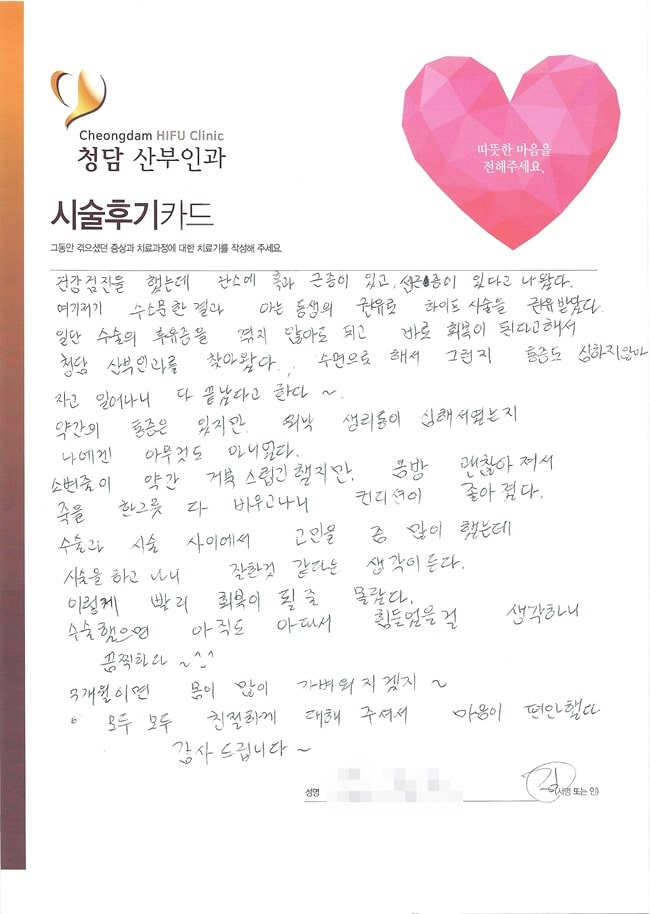 Cheongdam HIFU Clinic
청담 산부인과
따뜻한 마음을
전해주세요.
시술후기카드
그동안 겪으셨던 증상과 치료과정에 대한 치료기를 작성해 주세요.
건강검진을 했는데 난소에 혹과 근종이 있고, 선근종이 있다고 나왔다.
여기저기 수소문한 결과 아는 동생의 권유로 하이프 시술을 권유받았다.
일단 수술의 후유증을 겪지 않아도 되고 바로 회복이 된다고해서
청담 산부인과를 찾아왔다. 수면으로 해서 그런지 통증도 심하지않아
자고 일어나니 다 끝났다고 한다~.
약간의 통증은 있지만, 워낙 생리통이 심해서였는지
나에겐 아무것도 아니었다.
소변줄이 약간 거북스럽긴 했지만, 금방 괜찮아져서
죽을 한그릇 다 비우고나니 컨디션이 좋아졌다.
수술과 시술 사이에서 고민을 좀 많이 했는데
시술을 하고 나니 잘한것 같다는 생각이든다.
이렇게 빨리 회복이 될줄 몰랐다.
수술했으면 아직도 아파서 힘들었을걸 생각하니
끔찍하다~^^
3개월이면 몸이 많이 가벼워지겠지~
모두모두 친절하게 대해 주셔서 마음이 편안했다
감사드립니다~
성명
(서명 또는 인)